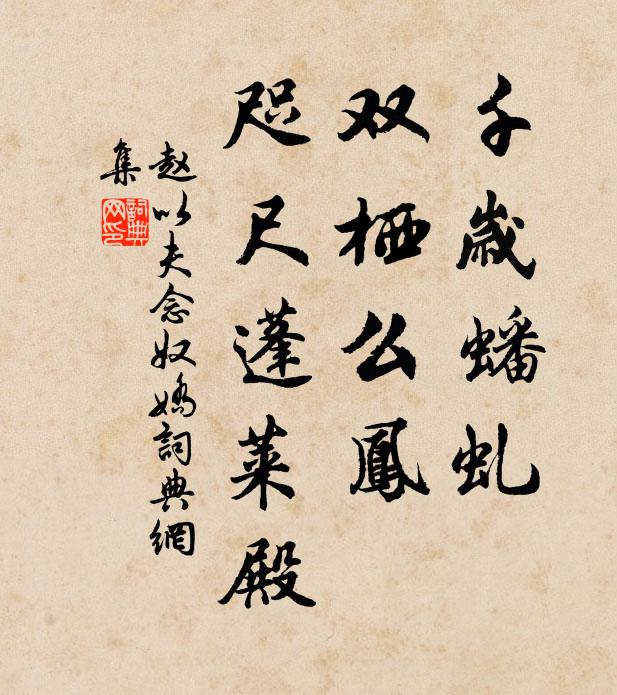 千歲蟠虬
双栖么鳳
咫尺蓬莱殿
赵以夫念奴嬌詞典網
集
詞典
网印